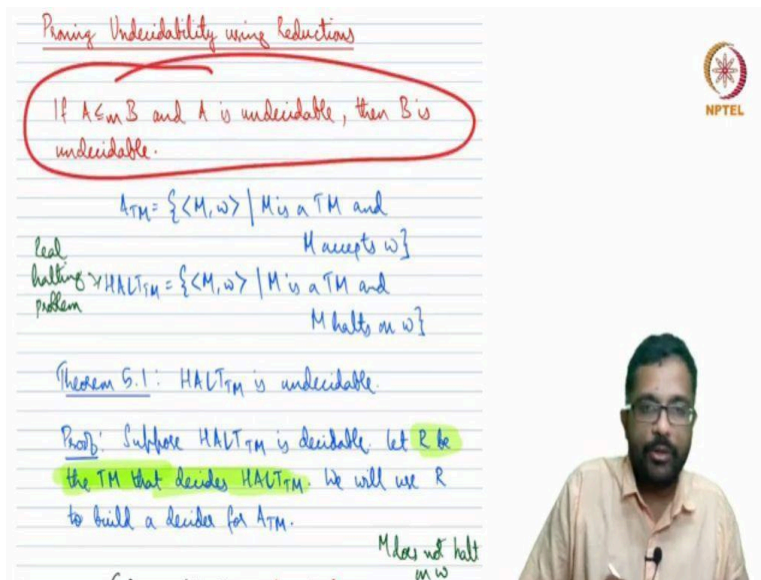 Proving Undecidability using Reductions
NPTEL
If A ≤m B and A is undecidable, then B is
undecidable.
ATM = {<M, w> | M is a TM and
M accepts w}
Real
halting
problem
HALTTM = {<M, w> | M is a TM and
M halts on w}
Theorem 5.1: HALTTM is undecidable.
Proof: Suppose HALTTM is decidable. Let R be
the TM that decides HALTTM. We will use R
to build a decider for ATM.
M does not halt
on w